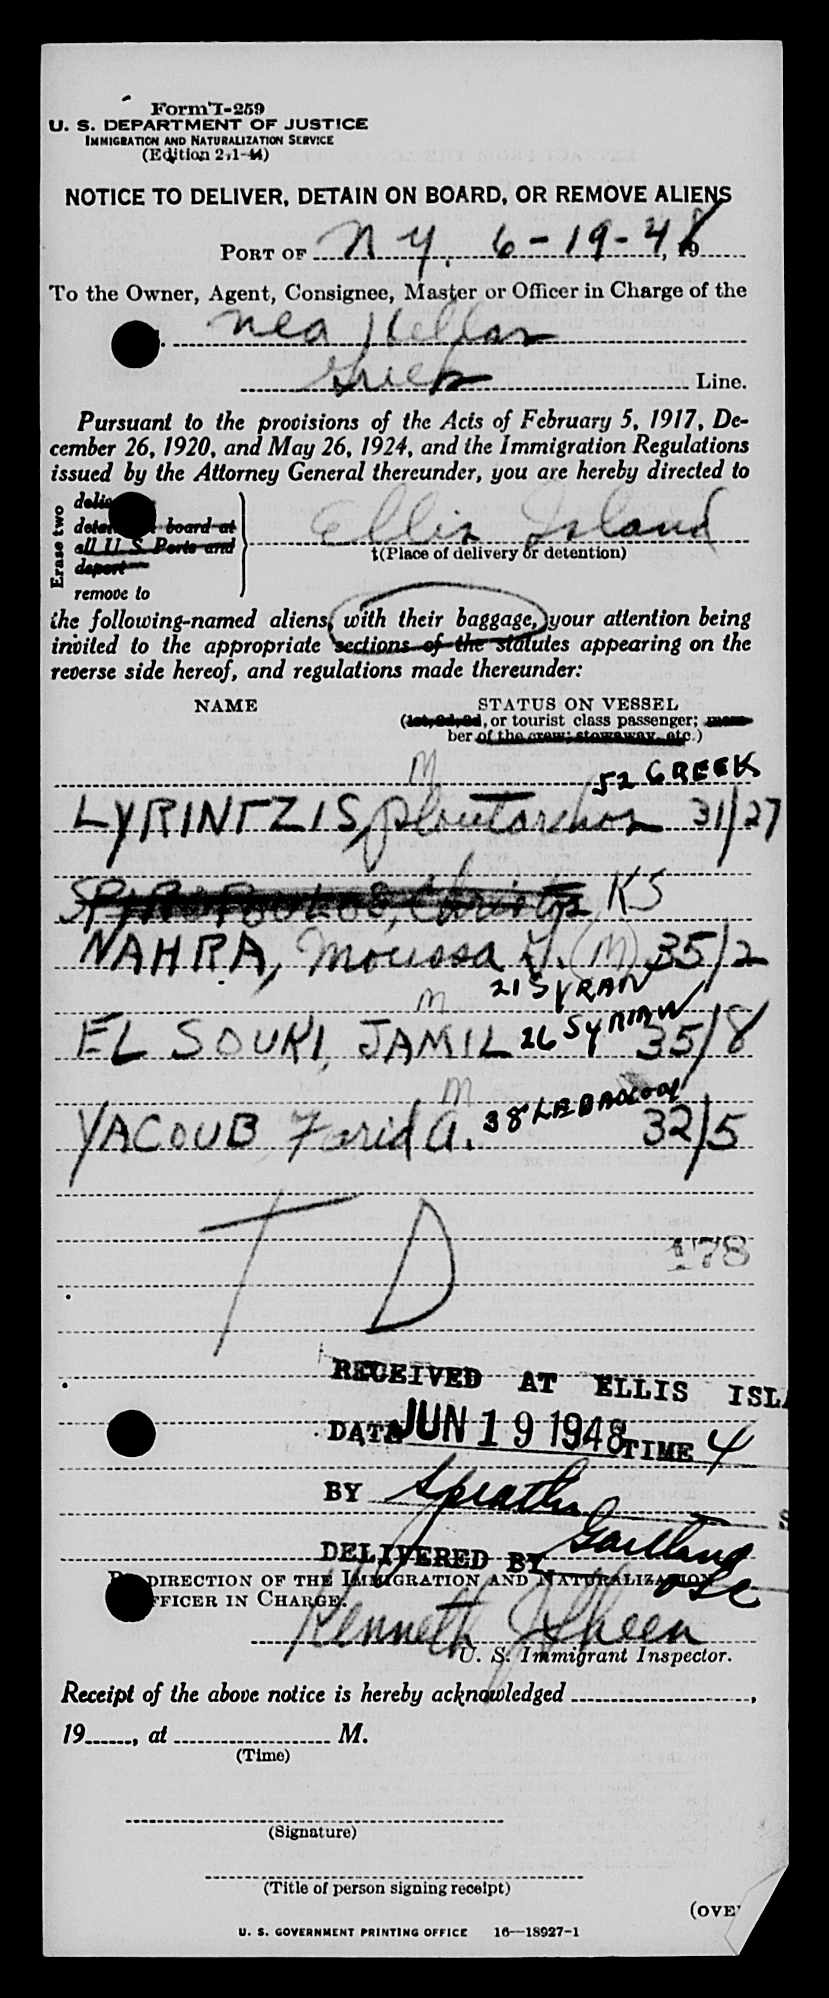 Form I-259
U. S. DEPARTMENT OF JUSTICE
IMMIGRATION AND NATURALIZATION SERVICE
(Edition 2-1-44)
NOTICE TO DELIVER, DETAIN ON BOARD, OR REMOVE ALIENS
PORT OF N Y. 6-19-48, 19
To the Owner, Agent, Consignee, Master or Officer in Charge of the
Nea Hellas
Greek Line.
Pursuant to the provisions of the Acts of February 5, 1917, De-
cember 26, 1920, and May 26, 1924, and the Immigration Regulations
issued by the Attorney General thereunder, you are hereby directed to
Erase two
board at
all U S Ports and
deport
remove to
Ellis Island
‡(Place of delivery or detention)
the following-named aliens, with their baggage, your attention being
invited to the appropriate sections of the statutes appearing on the
reverse side hereof, and regulations made thereunder:
NAME STATUS ON VESSEL
(1st, 2d, 3d, or tourist class passenger; mem-
ber of the crew; stowaway, etc.)
M 52 GREEK
LYRINTZIS, Ploutarchos 31/27
KS
NAHRA, Moussa D. (M) 35/2
21 SYRAN
M
EL SOUKI, JAMIL 26 SYRIAN 35/8
M
YACOUB Farid A. 38 LEBANON 32/5
T D
178
RECEIVED AT ELLIS ISLA
DATE JUN 19 1948 TIME 4
BY
DELIVERED BY
DIRECTION OF THE IMMIGRATION AND NATURALIZATION
FFICER IN CHARGE.
Kenneth J Sheen
U. S. Immigrant Inspector.
Receipt of the above notice is hereby acknowledged ,
19 , at M.
(Time)
(Signature)
(Title of person signing receipt)
(OVE
U. S. GOVERNMENT PRINTING OFFICE 16—18927-1